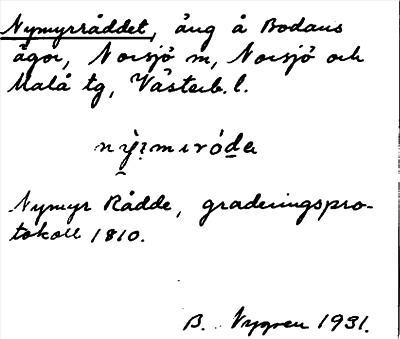 Nymyrråddet, äng å Bodans
ägor, Norsjö sn, Norsjö och
Malå tg, Västerb. l.
Nymyr Rådde, graderingspro-
tokoll 1810.
B. Nygren 1931.